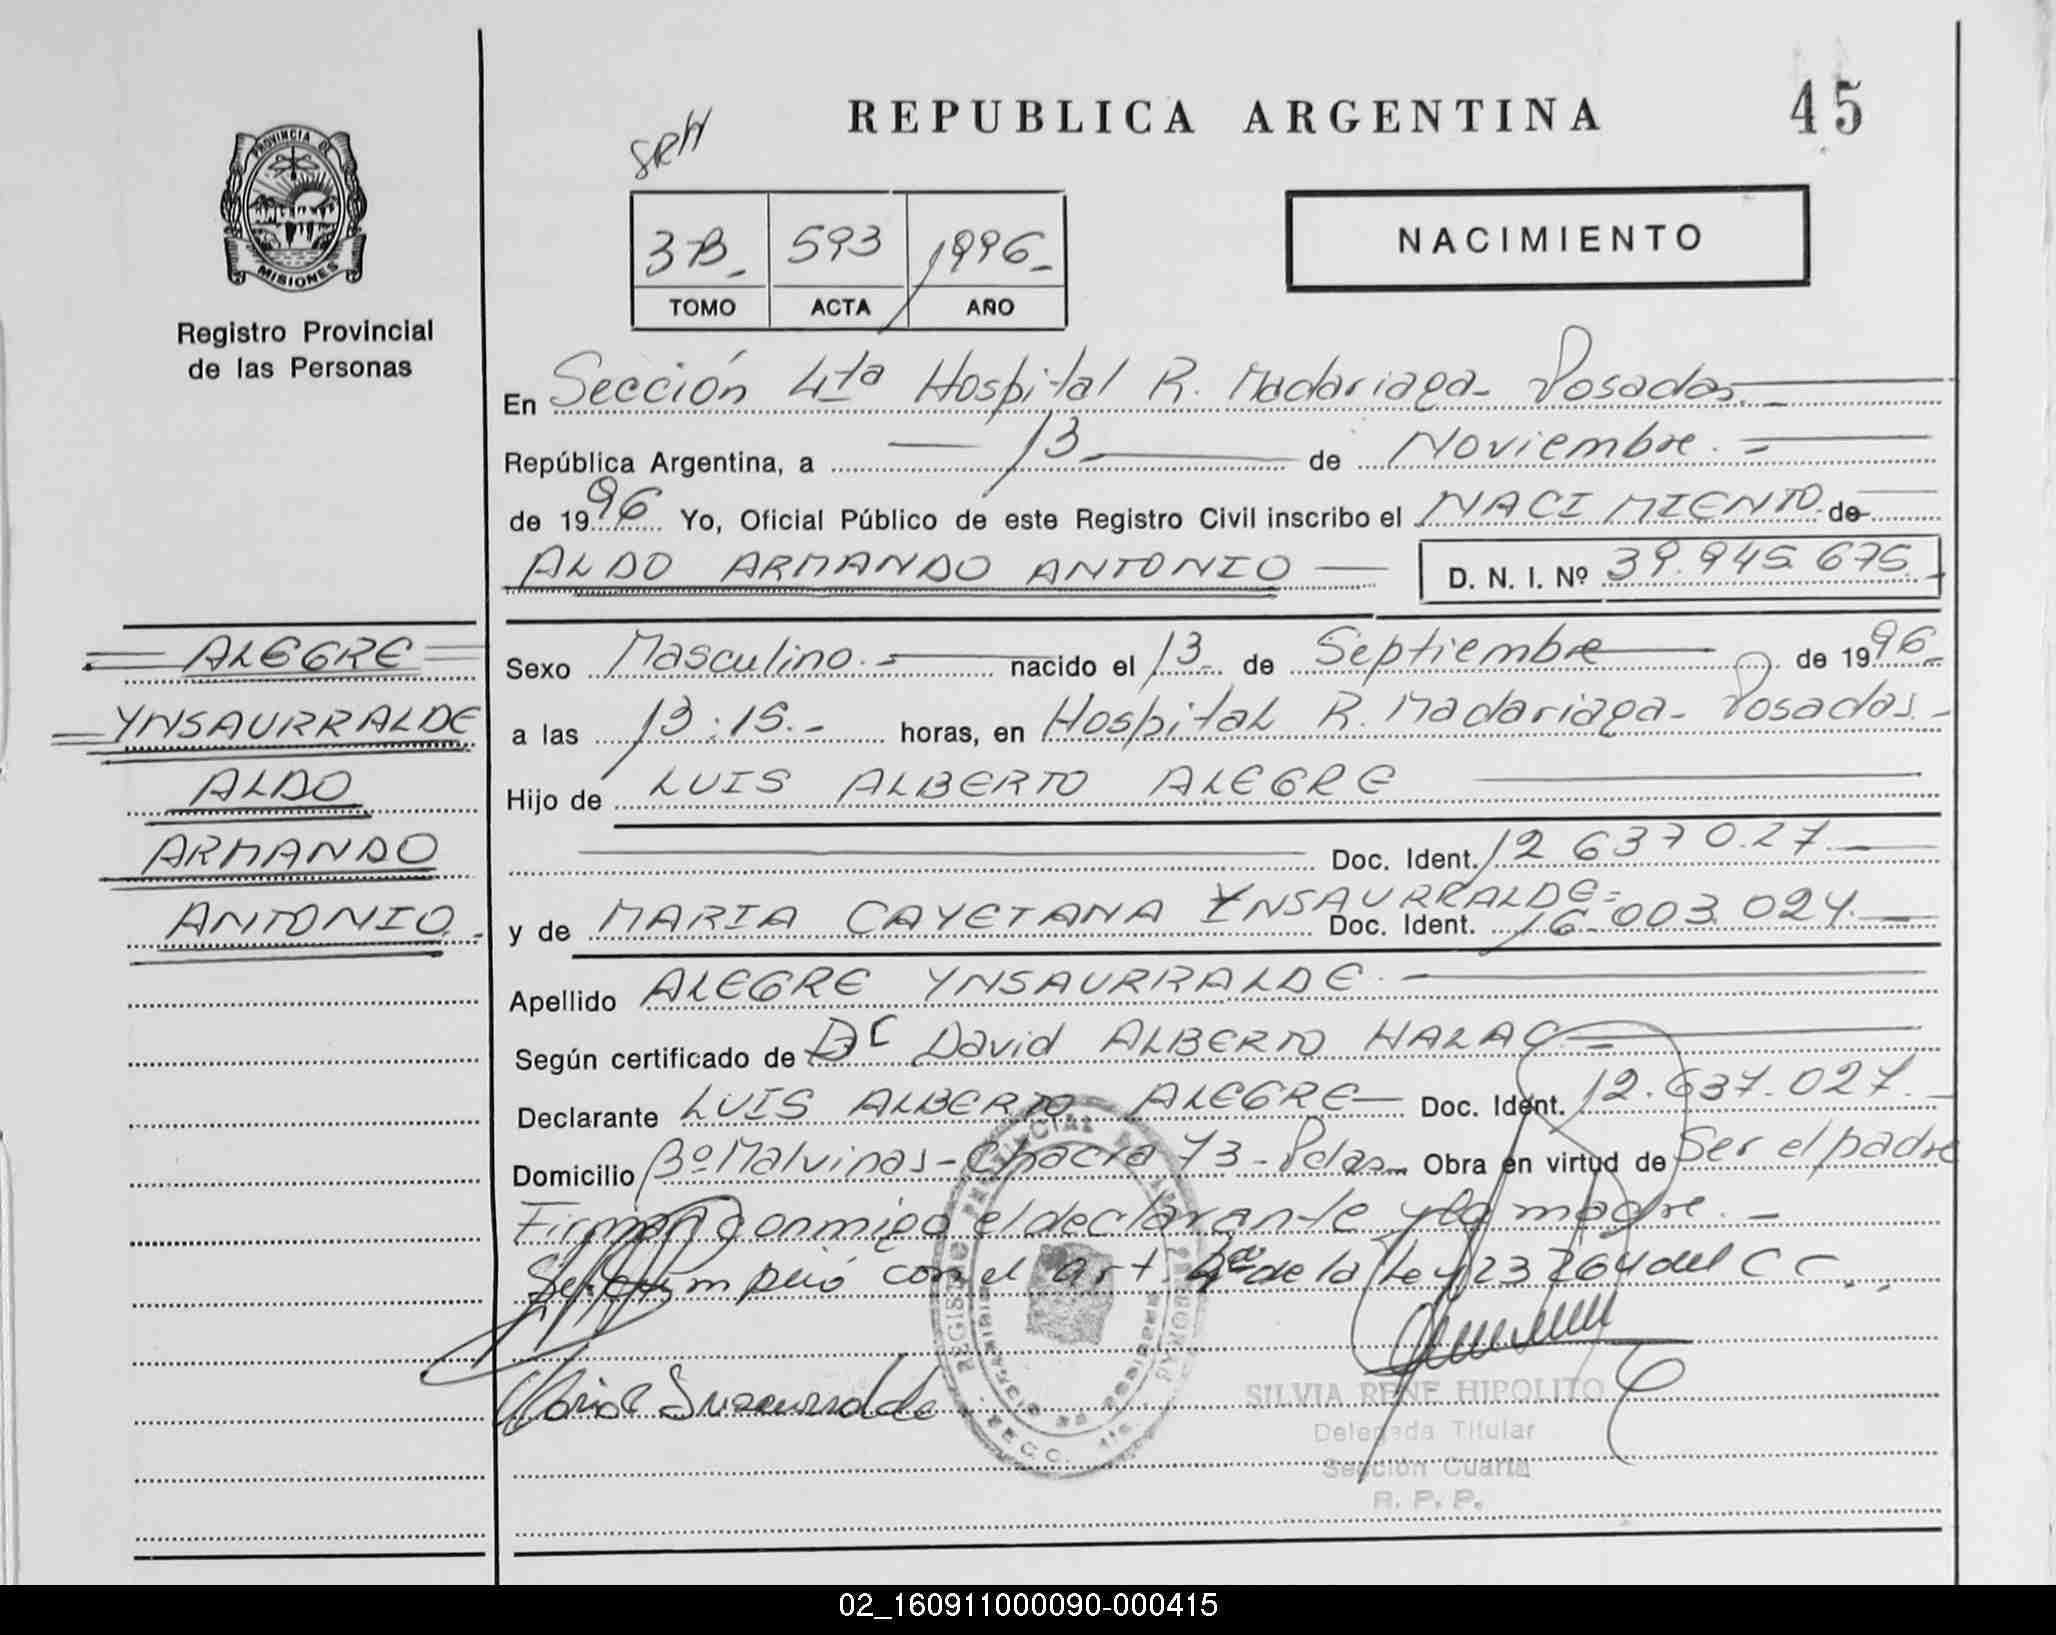 REPUBLICA ARGENTINA
45
SRH
PROVINCIA DE
MISIONES
Registro Provincial
de las Personas
3-B_ 593 1996_
TOMO ACTA AÑO
NACIMIENTO
En Sección 4ta Hospital R. Madariaga- Posadas.-
República Argentina, a 13 de Noviembre.-
de 1996 Yo, Oficial Público de este Registro Civil inscribo el NACIMIENTO de
ALDO ARMANDO ANTONIO D. N. I. Nº 39.945.675.-
ALEGRE
YNSAURRALDE
ALDO
ARMANDO
ANTONIO.-
Sexo Masculino.- nacido el 13 de Septiembre de 1996
a las 13:15.- horas, en Hospital R. Madariaga- Posadas.-
Hijo de LUIS ALBERTO ALEGRE
Doc. Ident. 12.637.027.-
y de MARIA CAYETANA YNSAURRALDE= Doc. Ident. 16.003.024.-
Apellido ALEGRE YNSAURRALDE.-
Según certificado de Dr David ALBERTO HALAC=
Declarante LUIS ALBERTO ALEGRE Doc. Ident. 12.637.027.-
Domicilio Bº Malvinas-Chacra 73-Pdas.- Obra en virtud de Ser el padre
Firman conmigo el declarante y la madre.-
Se cumplió con el art. 4º de la Ley 23264 del C C.
Maria C Insaurralde
SILVIA RENE HIPOLITO
Delegada Titular
Sección Cuarta
R. P. P.
02_160911000090-000415